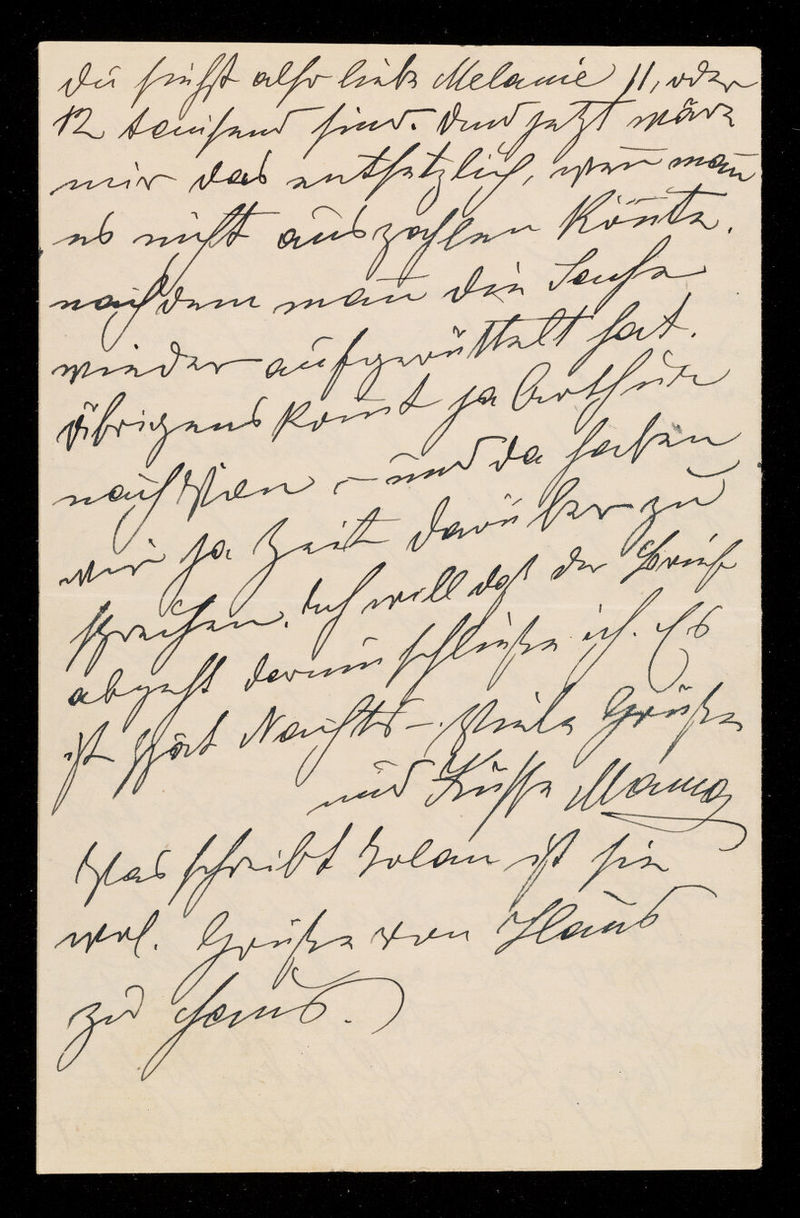 Du siehst also liebe Melanie 11, oder
12 tausend sind. Und jetzt wäre
mir das entsetzlich, wen̄ man̄
es nicht auszahlen kön̄te.
nachdem man̄ die Sache
wieder aufgerüttelt hat.
Übrigens kom̄t ja Arthur
nach Wien – und da haben
wir ja Zeit darüber zu
sprechen. Ich will daß der Brief
abgeht darum schließe ich. Es
ist spät Nachts –. Viele Grüße
und Küsse Mama
Was schreibt Jolan ist sie
wol. Grüße von Haus
zu Haus.